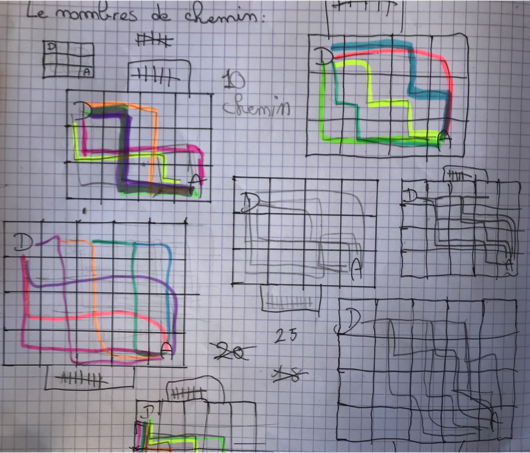 Le nombres de chemin:
D
A
10
chemin
D
D
A
A
D
D
A
A
D
A
25
D
20
A
D